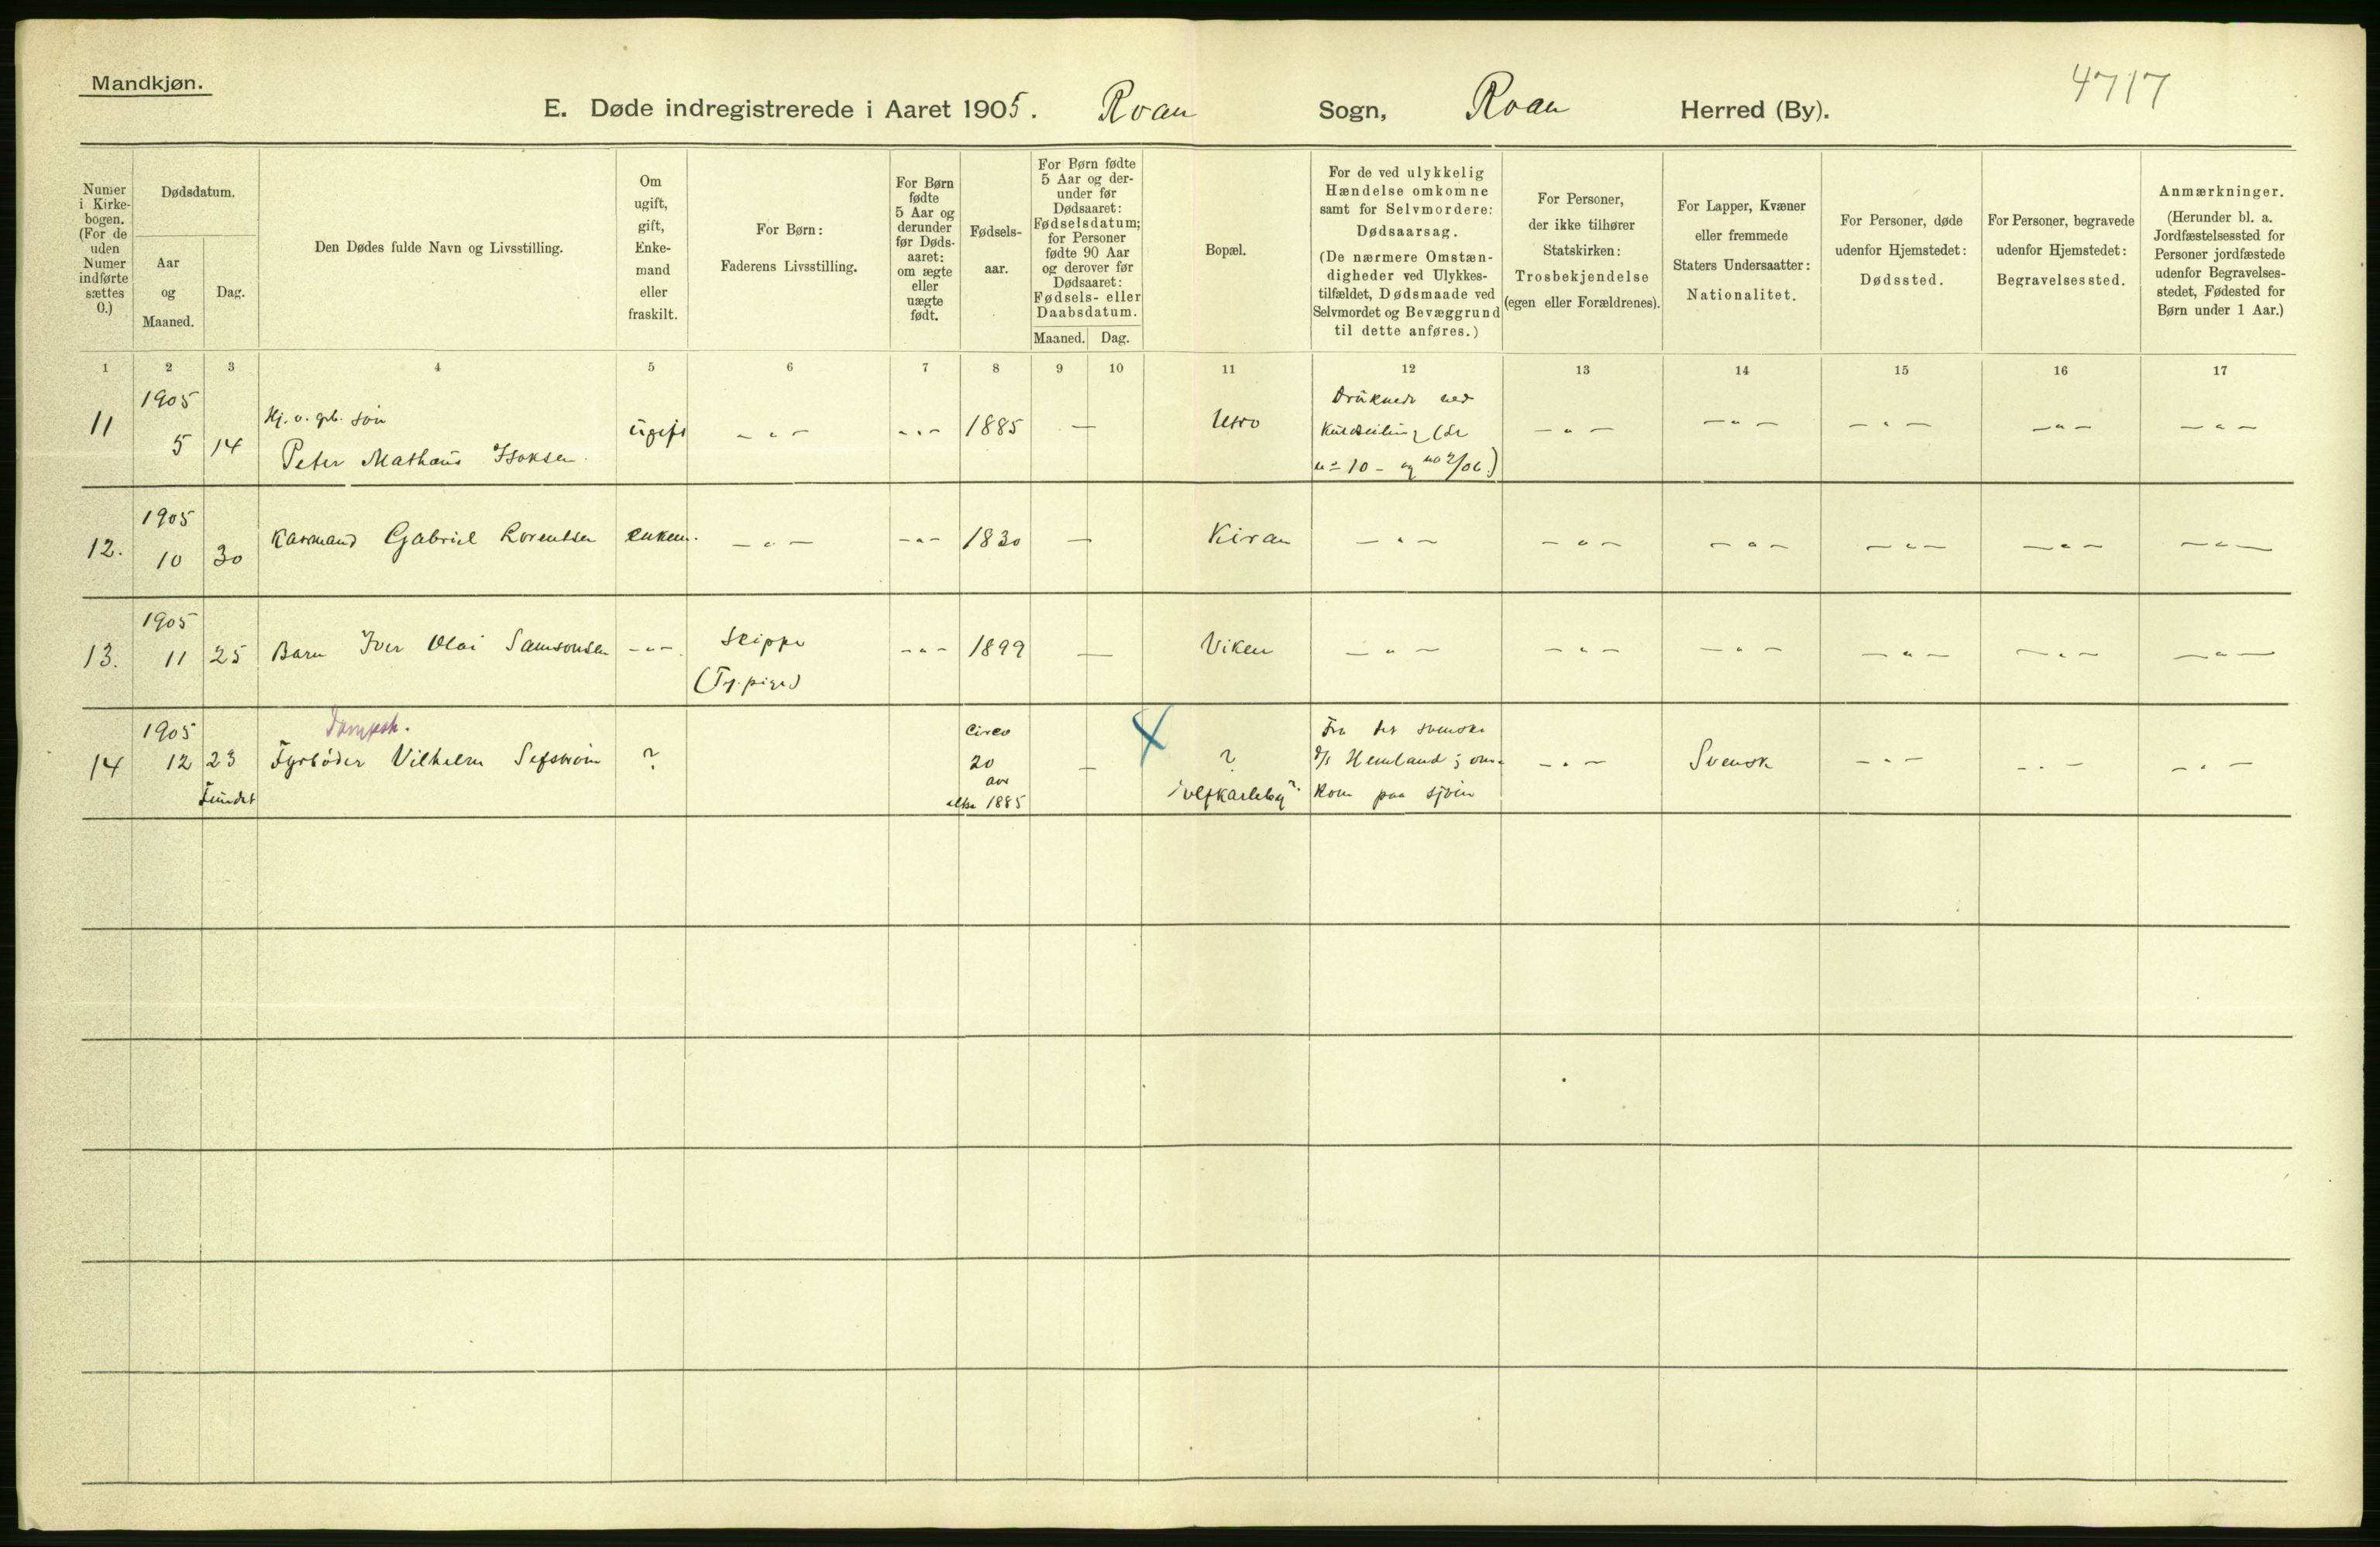 Mandkjøn.
4717
E. Døde indregistrerede i Aaret 1905. Roan Sogn, Roan Herred (By).
Numer i Kirke-bogen. (For de uden Numer indførte sættes 0.)
Dødsdatum.
Aar og Maaned.
Dag.
Den Dødes fulde Navn og Livsstilling.
Om ugift, gift, Enke-mand eller fraskilt.
For Børn: Faderens Livsstilling.
For Børn fødte 5 Aar og derunder før Døds-aaret: om ægte eller uægte født.
Fødsels-aar.
For Børn fødte 5 Aar og der-under før Dødsaaret: Fødselsdatum; for Personer fødte 90 Aar og derover før Dødsaaret: Fødsels- eller Daabsdatum.
Maaned. Dag.
Bopæl.
For de ved ulykkelig Hændelse omkomne samt for Selvmordere: Dødsaarsag. (De nærmere Omstæn-digheder ved Ulykkes-tilfældet, Dødsmaade ved Selvmordet og Bevæggrund til dette anføres.)
For Personer, der ikke tilhører Statskirken: Trosbekjendelse (egen eller Forældrenes).
For Lapper, Kvæner eller fremmede Staters Undersaatter: Nationalitet.
For Personer, døde udenfor Hjemstedet: Dødssted.
For Personer, begravede udenfor Hjemstedet: Begravelsessted.
Anmærkninger. (Herunder bl. a. Jordfæstelsessted for Personer jordfæstede udenfor Begravelses-stedet, Fødested for Børn under 1 Aar.)
1 2 3 4 5 6 7 8 9 10 11 12 13 14 15 16 17
1905 Druknede ved
11 Hj. v. grb. søn ugift - " - - " - 1885 — Utro - " - - " - - " - - " - - " -
5 14 Peter Mathæus Isaksen no 10 - og no 2/06.)
1905
12. 10 30 Kaarmand Gabriel Lorentsen enkem. - " - - " - 1830 — Kiran - " - - " - - " - - " - - " - - " -
1905
13. 11 25 Barn Iver Olai Samsonsen - " - - " - 1899 — Viken - " - - " - - " - - " - - " - - " -
1905 Dampsk. circa Fra det svenske
14 12 23 Fyrbøder Vilhelm Sefstrøm ? 20 — ? d/s Hemland; om- - " - Svensk - " - - " - - " -
Fundet aar
altsa 1885 "elfkarleby" ? kom paa sjøen